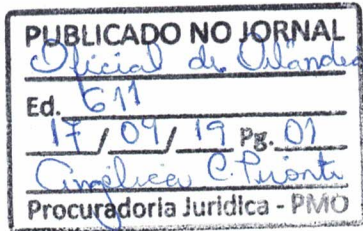 PUBLICADO NO JORNAL
Oficial de Orlândia
Ed. 611
17 / 09 / 19 Pg. 01
Angélica C. Pironti
Procuradoria Jurídica - PMO